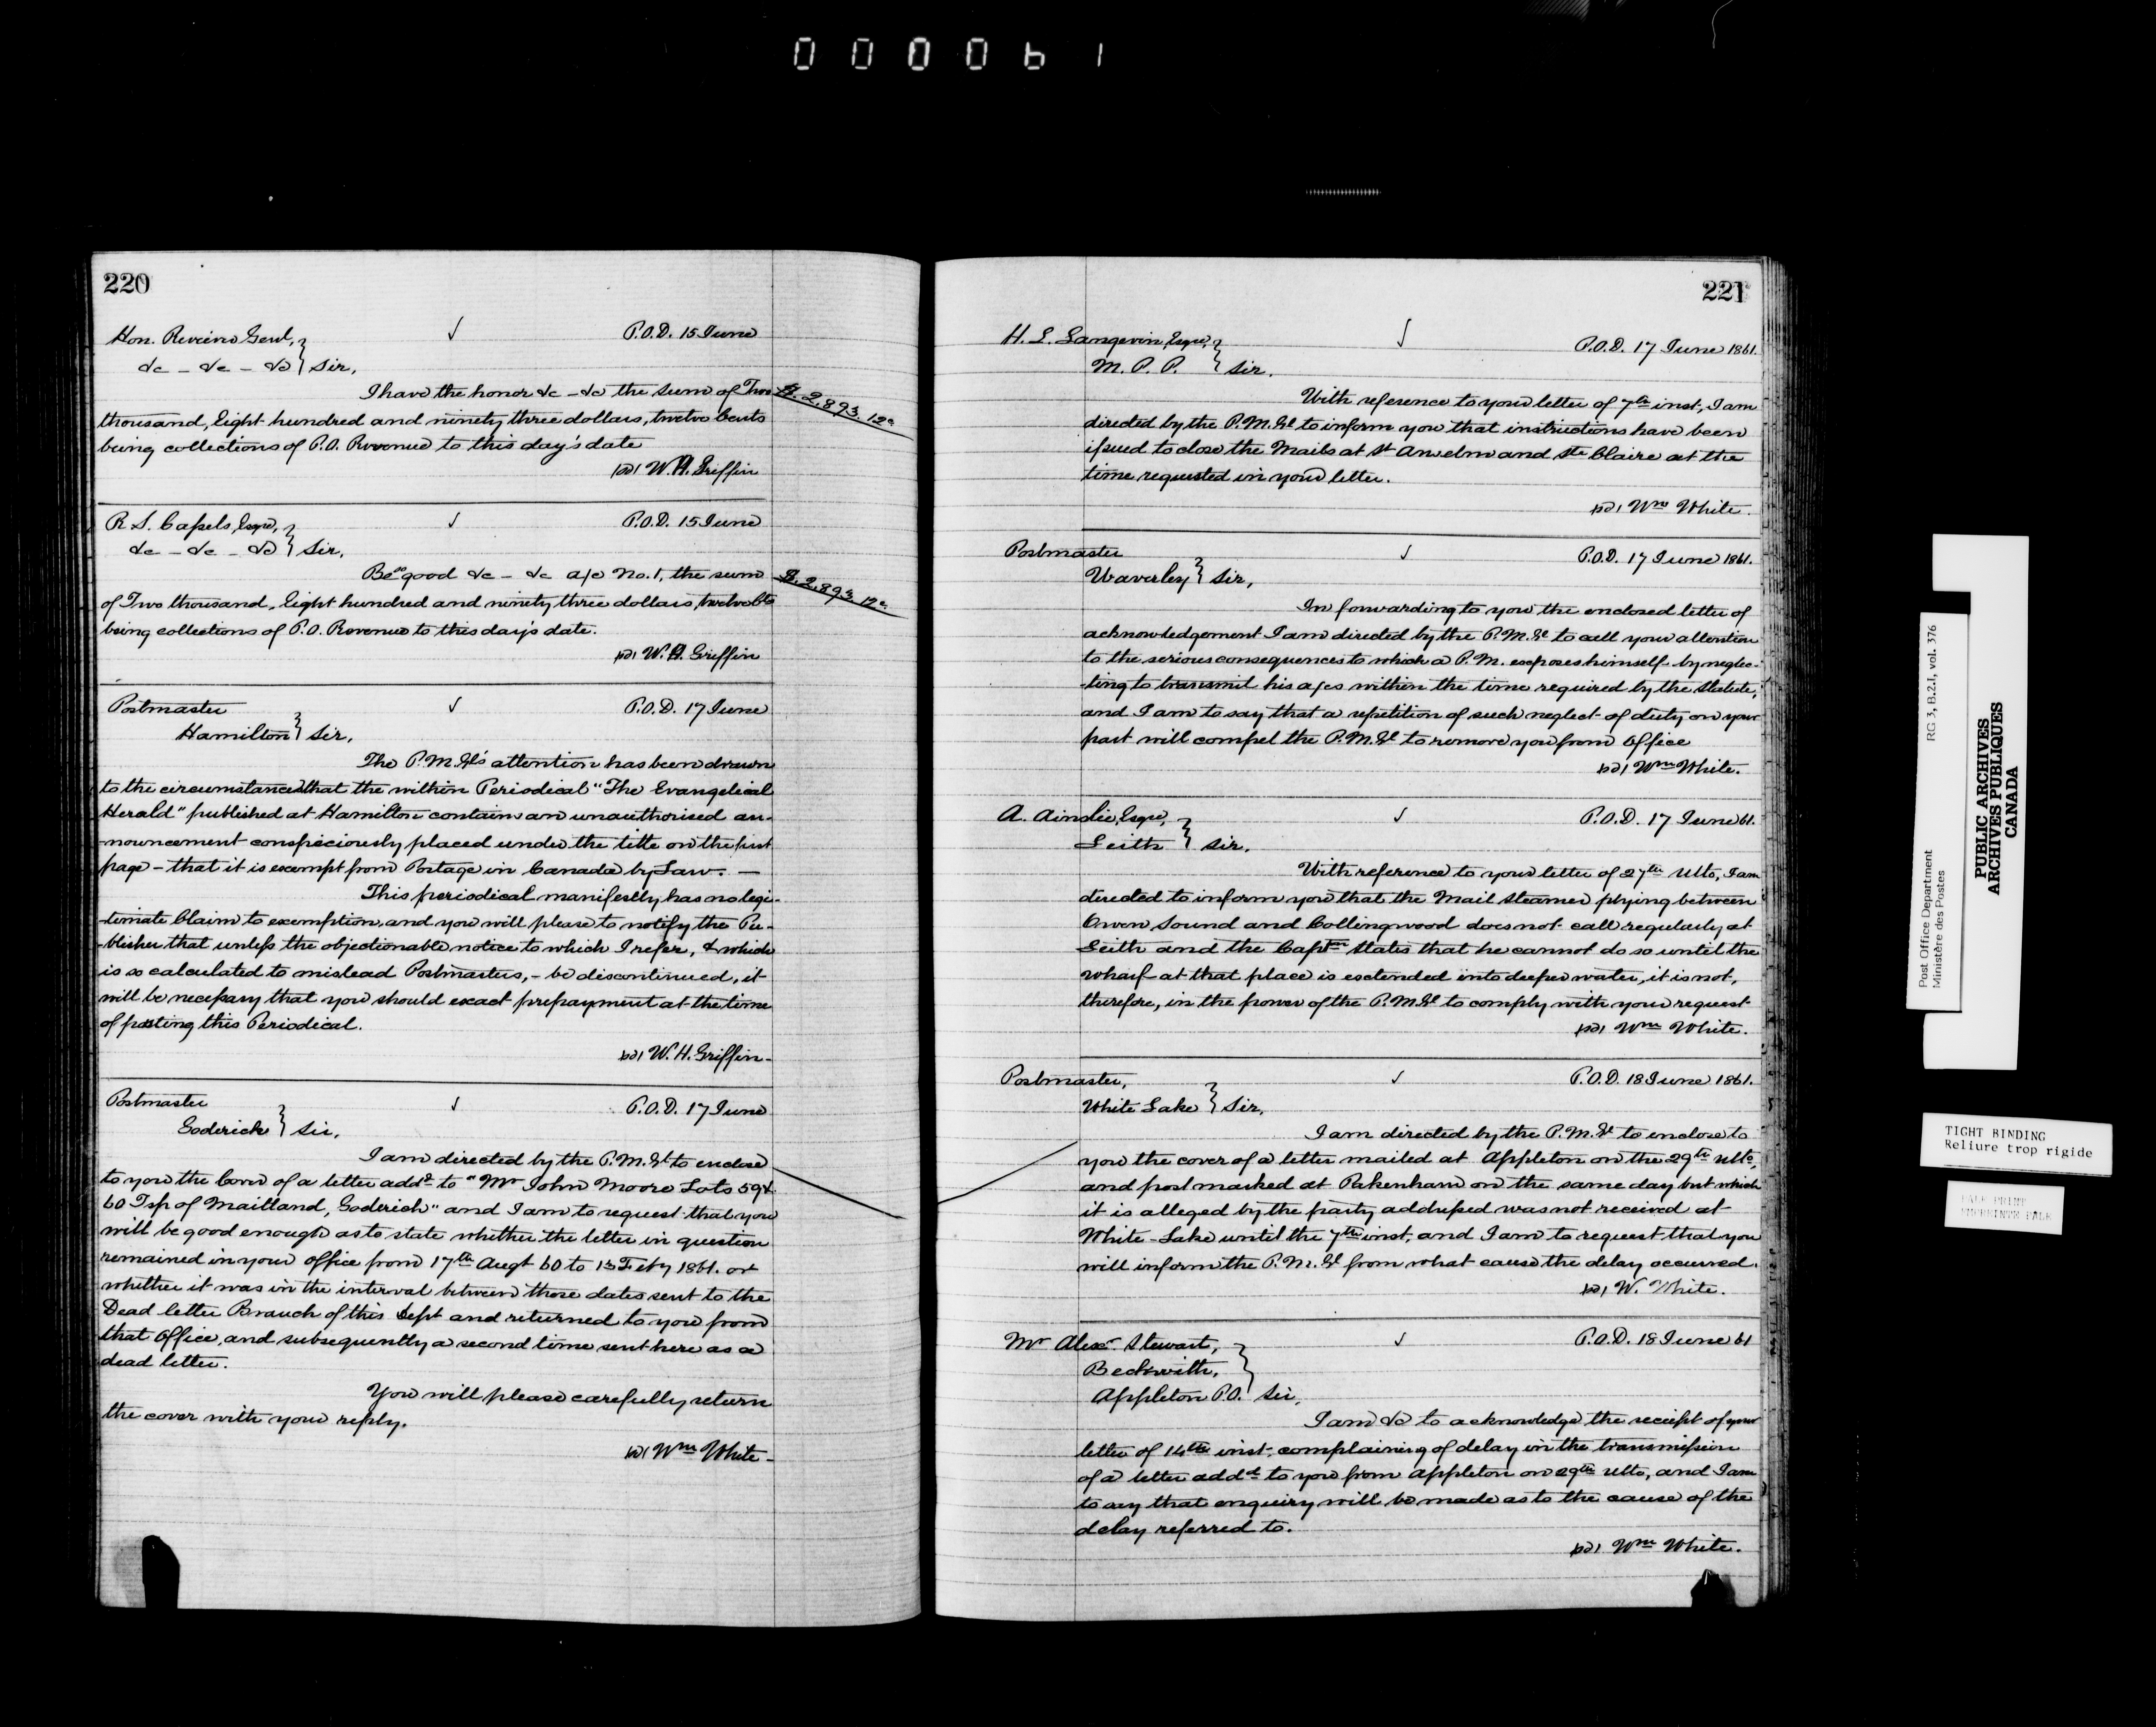 000061
220
Hon. Receiver Genl, ✓ P.O.D. 15 June
&c - &c - &c } Sir,
I have the honor &c - &c the sum of Two $2.893.12c
thousand, Eight hundred and ninety three dollars, twelve Cents
being collections of P.O. Revenue to this day's date
W.H. Griffin
R. S. Cassels, Esqre, ✓ P.O.D. 15 June
&c - &c - &c } Sir,
Be so good &c - &c a/c No. 1, the sum $2.893.12c
of Two thousand, Eight hundred and ninety three dollars, twelve Cts
being collections of P.O. Revenue to this day's date.
W.H. Griffin
Postmaster ✓ P.O.D. 17 June
Hamilton } Sir,
The P.M.Gl's attention has been drawn
to the circumstance that the within Periodical "The Evangelical
Herald" published at Hamilton contains an unauthorised an-
-nouncement conspiciously placed under the title on the first
page - that it is exempt from Postage in Canada by Law. —
This periodical manifestly has no legi-
-timate Claim to exemption, and you will please to notify the Pu-
-blisher that unless the objectionable notice to which I refer, & which
is so calculated to mislead Postmasters, - be discontinued, it
will be necessary that you should exact prepayment at the time
of posting this Periodical.
W. H. Griffin -
Postmaster ✓ P.O.D. 17 June
Goderich } Sir,
I am directed by the P.M.Gl to enclose
to you the cover of a letter addd to "Mr John Moore Lots 59 &
60 Tsp of Maitland, Goderich" and I am to request that you
will be good enough as to state whether the letter in question
remained in your office from 17th Augt 60 to Feby 1861. or
whether it was in the interval between those dates sent to the
Dead letter Branch of this Dept and returned to you from
that Office, and subsequently a second time sent here as a
dead letter.
You will please carefully return
the cover with your reply.
Wm White -
221
H. L. Langevin, Esqre, ✓ P.O.D. 17 June 1861.
M. P. P. } Sir.
With reference to your letter of 7th inst, I am
directed by the P.M.Gl to inform you that instructions have been
issued to close the Mails at St Anselm and Ste Claire at the
time requested in your letter.
Wm White.
Postmaster ✓ P.O.D. 17 June 1861.
Waverley } Sir,
In forwarding to you the enclosed letter of
acknowledgement I am directed by the P.M.Gl to call your attention
to the serious consequences to which a P.M. exposes himself by neglec-
-ting to transmit his a/cs within the time required by the Statute,
and I am to say that a repetition of such neglect of duty on your
part will compel the P.M.Gl to remove you from Office
Wm White.
A. Ainslie, Esqre, ✓ P.O.D. 17 June 61.
Leith } Sir.
With reference to your letter of 27th Ulto, I am
directed to inform you that the Mail Steamer plying between
Owen Sound and Collingwood does not call regularly at
Leith and the Captn states that he cannot do so until the
wharf at that place is extended into deeper water, it is not,
therefore, in the power of the P.M.Gl to comply with your request
Wm White.
Postmaster, ✓ P.O.D. 18 June 1861.
White Lake } Sir,
I am directed by the P.M.Gl to enclose to
you the cover of a letter mailed at Appleton on the 29th Ulto,
and post marked at Pakenham on the same day but which
it is alleged by the party addressed was not received at
White-Lake until the 7th inst, and I am to request that you
will inform the P.M.Gl from what cause the delay occurred.
W. White.
Mr Alexr. Stewart, ✓ P.O.D. 18 June 61
Beckwith,
Appleton P.O. } Sir,
I am &c to acknowledge the receipt of your
letter of 14th inst, complaining of delay in the transmission
of a letter addd to you from Appleton on 29th Ulto, and I am
to say that enquiry will be made as to the cause of the
delay referred to.
Wm White.
Post Office Department RG 3, B.2.1, vol. 376
Ministère des Postes
PUBLIC ARCHIVES
ARCHIVES PUBLIQUES
CANADA
TIGHT BINDING
Reliure trop rigide
PALE PRINT
IMPRIMTE PALE